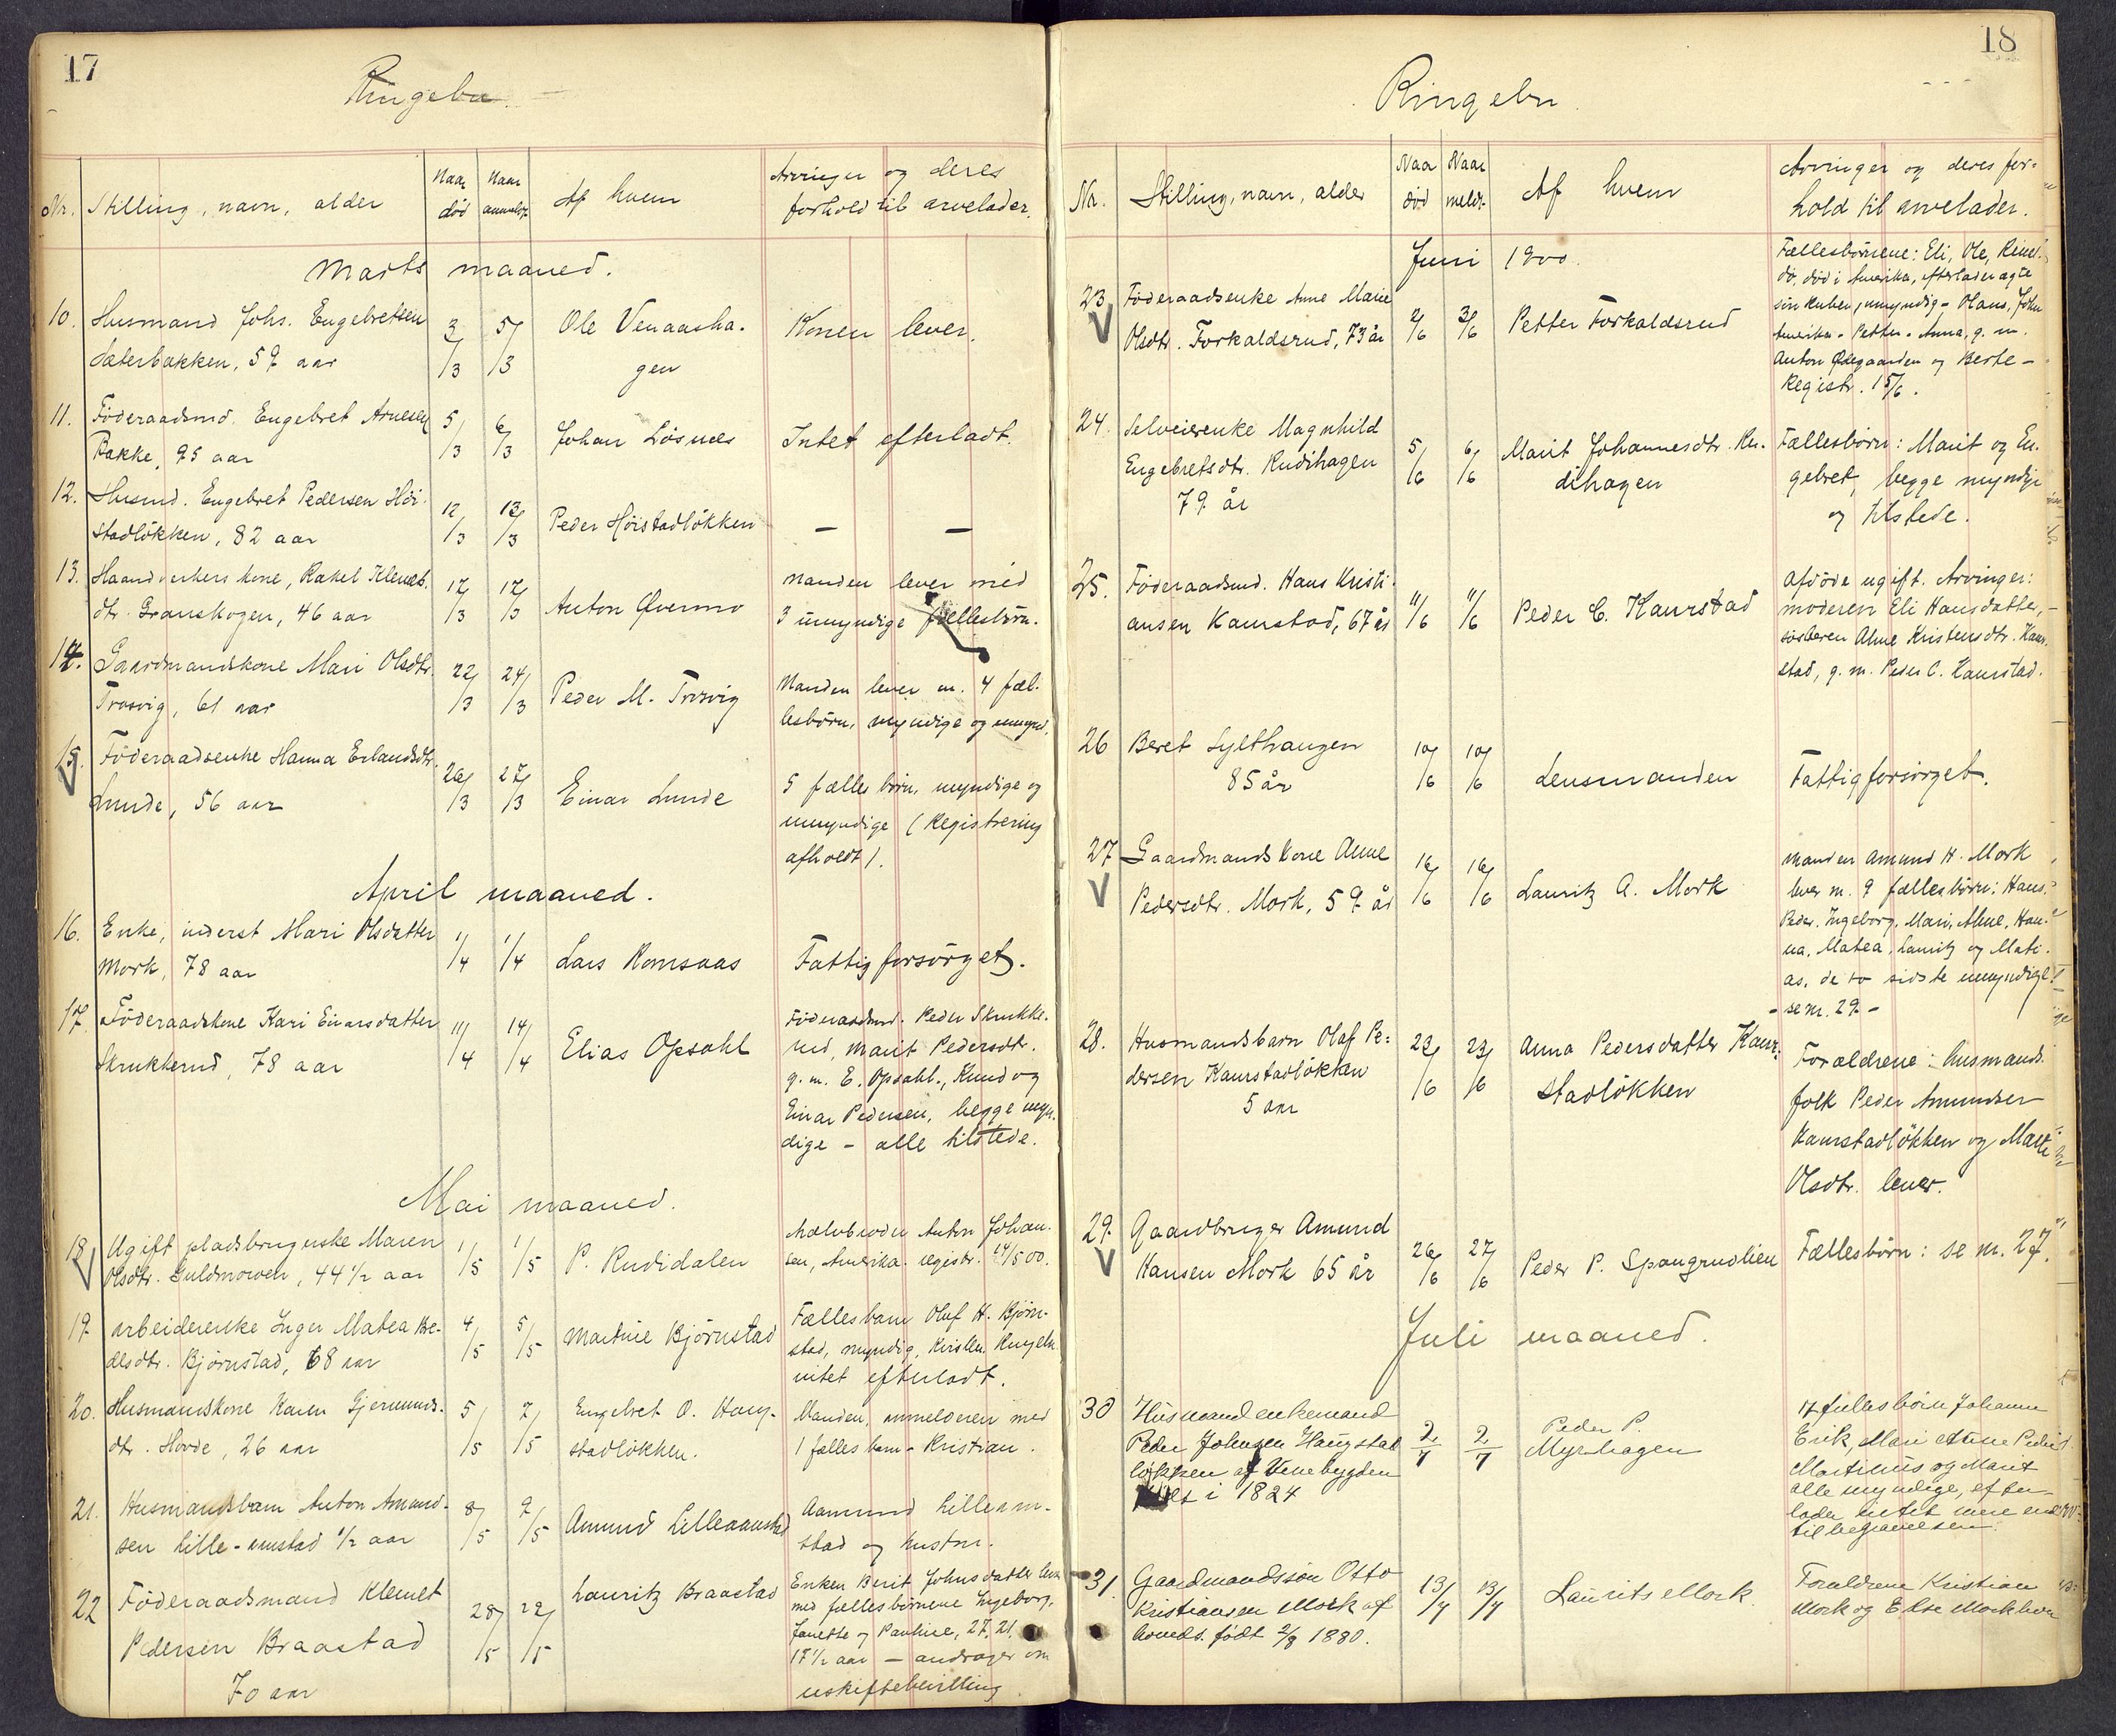 17
Ringebu.
Nr. Stilling, navn, alder
Naar død
Naar anmeldt
Af hvem
Arvinger og deres
forhold til arvelader.
Marts maaned.
10. Husmand Johs. Engebretsen 3/3 5/3 Ole Venaasha- Konen lever.
Sæterbakken, 59 aar gen
11. Föderaadsmd. Engebret Arnesen 5/3 6/3 Johan Lösnæs Intet efterladt.
Bakke, 95 aar
12. Husmd. Engebret Pedersen Höi- 12/3 13/3 Peder Höistadlökken — —
stadlökken, 82 aar
13. Haandverkers kone, Rakel Klemets- 17/3 17/3 Anton Övermo Manden lever med
dtr. Granskogen, 46 aar 3 umyndige fællesbörn.
14. Gaardmandskone Mari Olsdtr. 22/3 24/3 Peder M. Trosvig Manden lever m. 4 fæl-
Trosvig, 61 aar lesbörn, myndige og umynd.
15. Föderaadsenke Hanna Erlandsdtr. 26/3 27/3 Einar Lunde 5 fælles börn, myndige og
Lunde, 56 aar umyndige (Registrering
afholdt).
April maaned.
16. Enke, inderst Mari Olsdatter 1/4 1/4 Lars Romsaas Fattigforsörget.
Mork, 78 aar
17. Föderaadskone Kari Einarsdatter 11/4 14/4 Elias Opsahl Föderaadsmd. Peder Skrukke-
Skrukkerud, 78 aar rud, Marit Pedersdtr.
g. m. E. Opsahl., Knud og
Einar Pedersen, begge myn-
dige – alle tilstede.
Mai maaned.
18. Ugift pladsbrugerske Maren 1/5 1/5 P. Rudidalen Halvbroder Anton Johan-
Olsdtr. Guldmoroen, 44 1/2 aar sen, Amerika. Registr. 14/5 00.
19. Arbeiderenke Inger Matea Bre- 4/5 5/5 Martine Björnstad Fællesbarn Oluf H. Björn-
desdtr. Björnstad, 68 aar stad, myndig,
intet efterladt.
20. Husmandskone Karen Gjermunds- 5/5 7/5 Engebret O. Haug- Manden, anmelderen med
dtr. Hovde, 26 aar stadlökken. 1 fælles barn – Kristian.
21. Husmandsbarn Anton Amund- 8/5 9/5 Amund Lilleaamstad Aamund Lilleam-
sen Lille-amstad 1/2 aar stad og hustru.
22 Föderaadsmand Klemet 28/5 29/5 Lauritz Braastad Enken Berit Johnsdatter lever
Pedersen Braastad med fællesbörnene Ingeborg,
70 aar Janette og Pauline, 27, 21,
17 1/2 aar – andrager om
uskiftebevilling
18
Ringebu
Nr. Stilling, navn, alder
Naar död
Naar meldt
Af hvem
Arvinger og deres for-
hold til arvelader.
Juni 1900.
23 Föderaadsenke Anne Marie 2/6 3/6 Petter Forkaldsrud Fællesbörnene: Eli, Ole,
Olsdtr. Forkaldsrud, 73 år död i Amerika, efterlader ægte
sön Ruben, umyndig – Olaus, John
Amerika – Petter – Anna, g. m.
Anton Ödegaarden og Berte –
Registr. 15/6.
24. Selveierenke Magnhild 5/6 6/6 Marit Johannesdtr. Ru- Fællesbörn: Marit og En-
Engebretsdtr. Rudihagen dihagen gebret, begge myndige
79 år og tilstede.
25. Föderaadsmd. Hans Kristi- 11/6 11/6 Peder C. Kaurstad Afdöde ugift. Arvinger:
ansen Kaurstad, 67 år moderen Eli Hansdatter, –
sösteren Anne Kristensdtr. Kaur-
stad, g. m. Peder C. Kaurstad.
26 Beret Sylthaugen 10/6 10/6 Lensmanden Fattigforsörget.
85 år
27 Gaardmandskone Anne 16/6 16/6 Lauritz A. Mork Manden Amund H. Mork
Pedersdtr. Mork, 59 år lever m. 9 fællesbörn: Hans,
Peder, Ingeborg, Mari, Anne, Han-
na, Matea, Lauritz og Mati-
as, de to sidste umyndige
– se nr. 29 –
28. Husmandsbarn Olaf Pe- 23/6 23/6 Anna Pedersdatter Kaur- Forældrene: husmands-
dersen Kaurstadlökken stadlökken folk Peder Amundsen
5 aar Kaurstadlökken og Marte
Olsdtr. lever.
29. Gaardbruger Amund 26/6 27/6 Peder P. Spangrudlien Fællesbörn: se nr. 27.
Hansen Mork 65 år
Juli maaned.
30 Husmand enkemand 2/7 2/7 Peder P. fællesbörn Johanne
Peder Johnsen Haugstad Myrhagen Erik, Mari Anne Peder
løkken af Venebygden Martinus og Marit
födt i 1824 alle myndige, efter-
lader intet mere end
til begravelsen.
31. Gaardmandssön Otto 13/7 13/7 Laurits Mork. Foreldrene Kristian
Kristiansen Mork af Mork og Else Mork lever
hoveds. födt 2/8 1880.